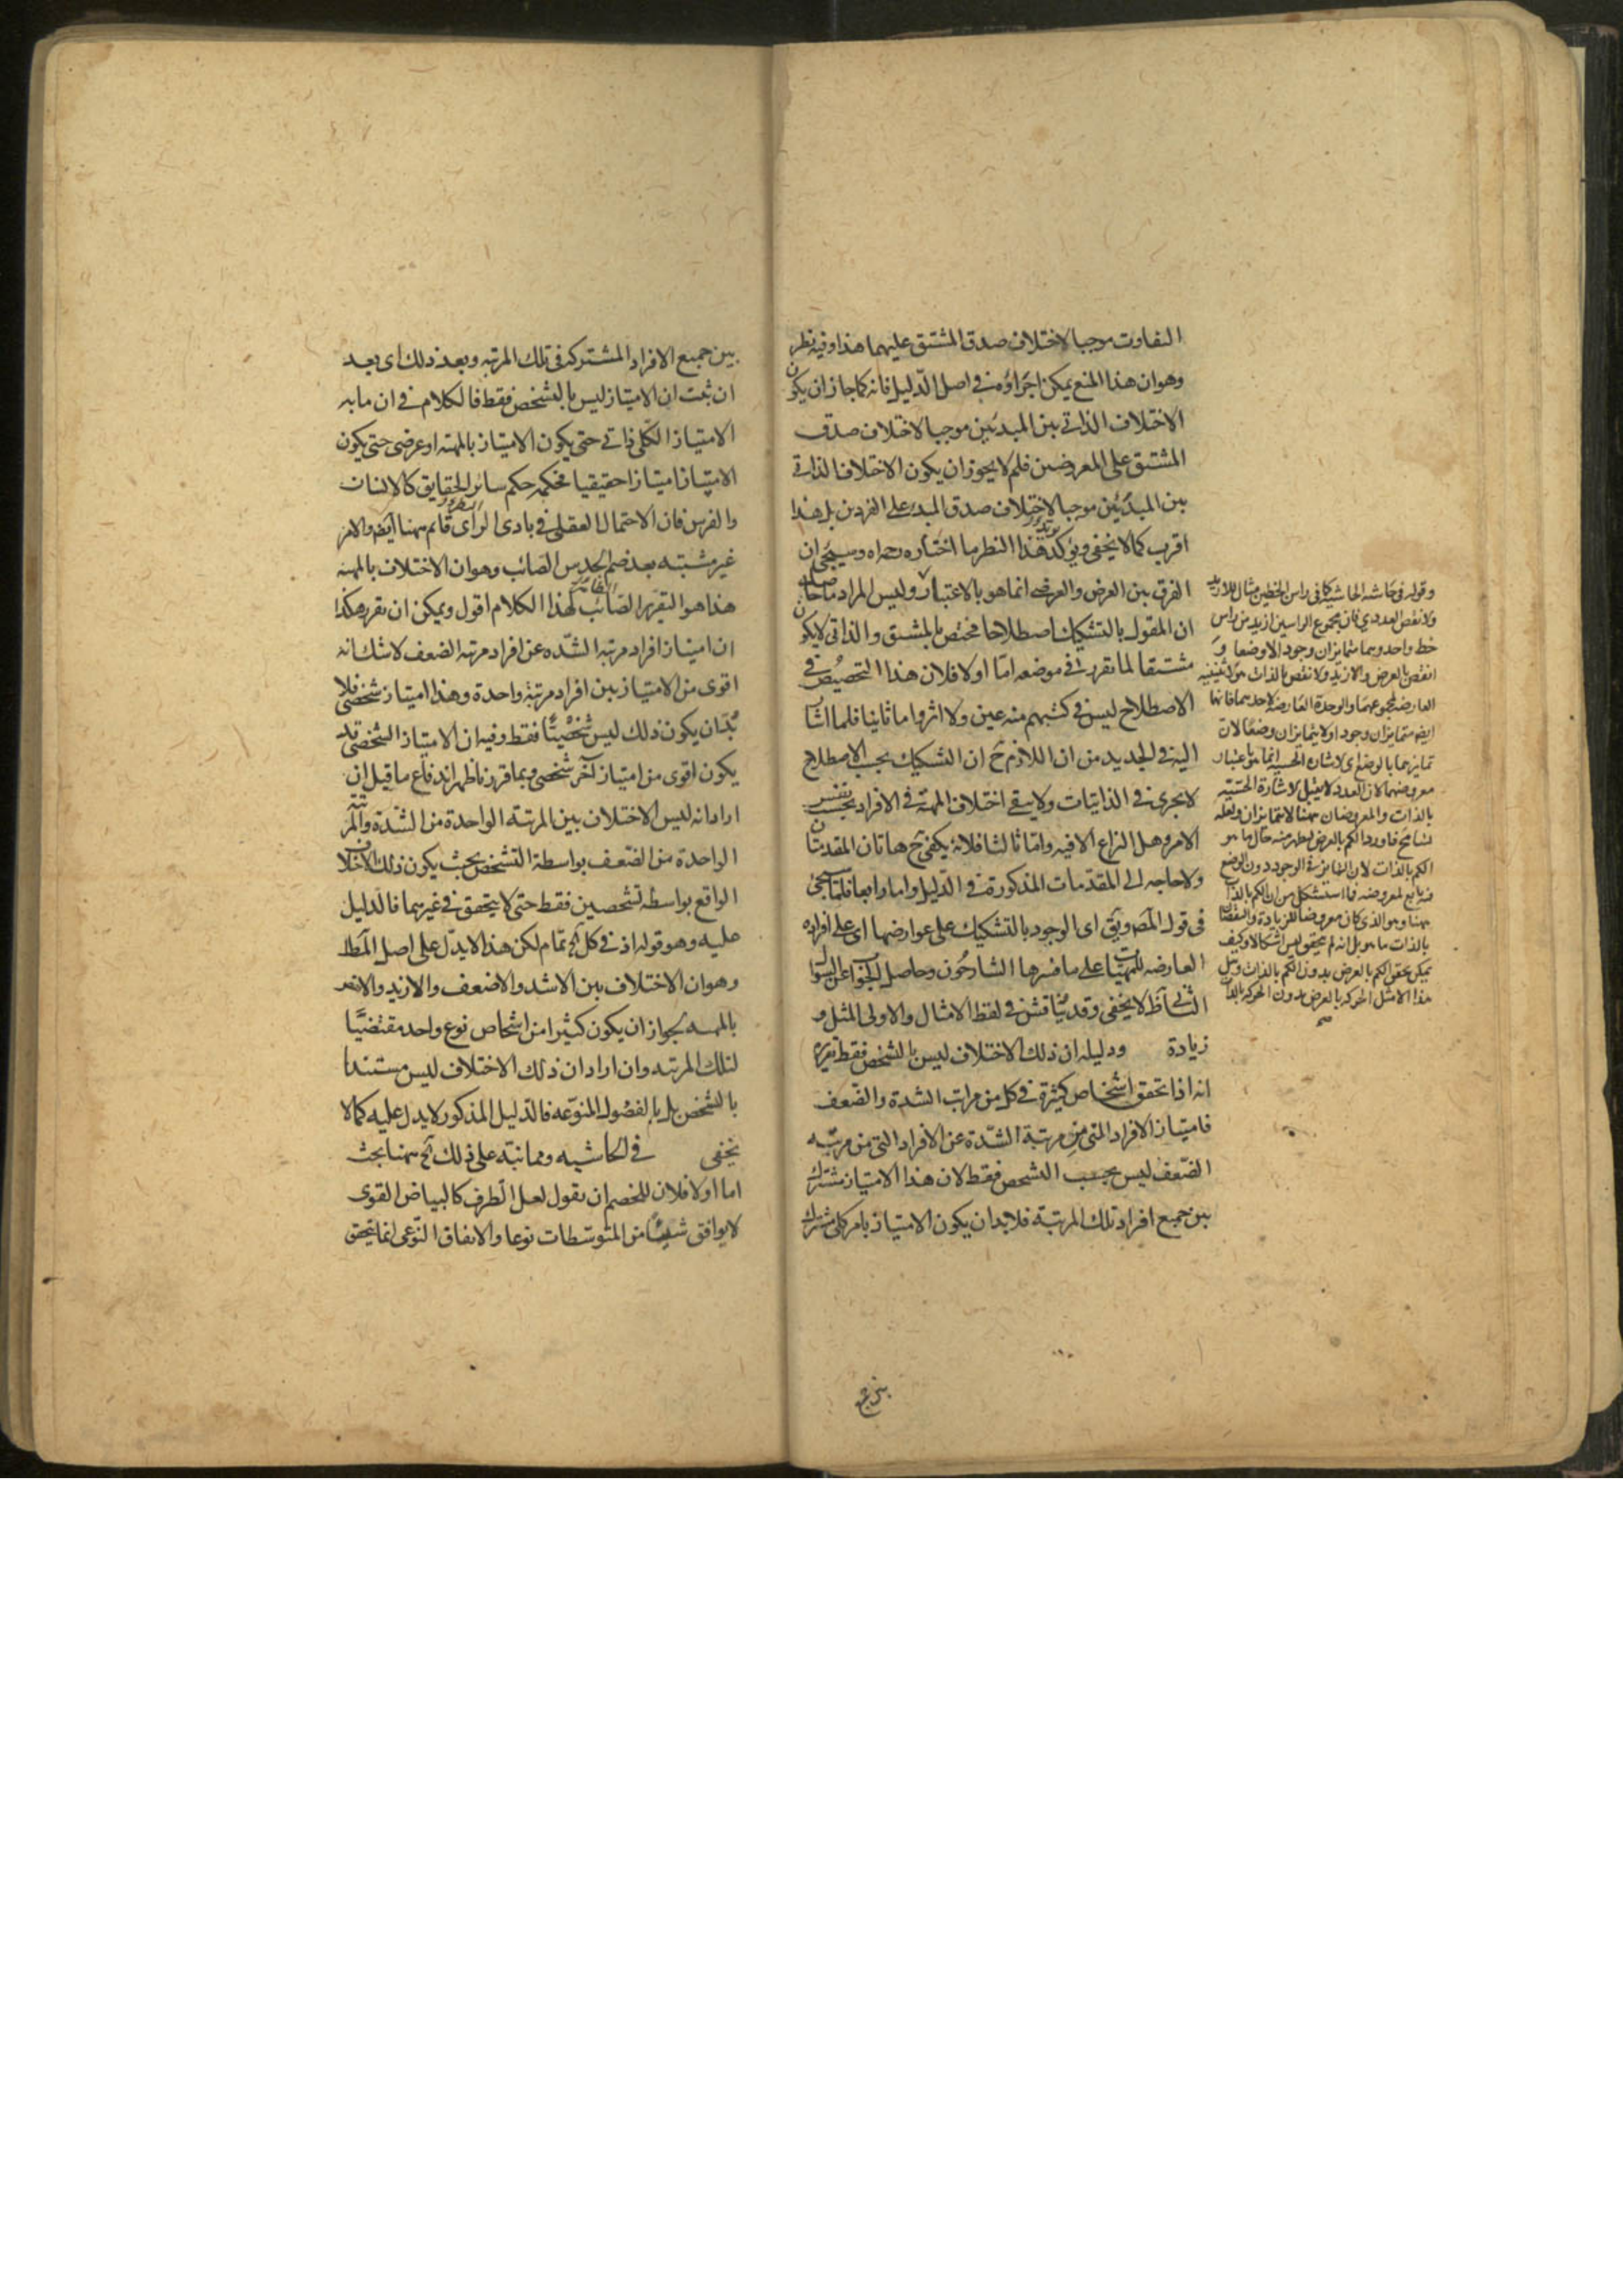 التفاوت موجبا لاختلاف صدق المشتق عليهما هذا وفيه نظر
وهو ان هذا المنع يمكن اجراؤه في اصل الدليل فانه كما جاز ان يكون
الاختلاف الذاتي بين المبدئين موجبا لاختلاف صدق
المشتق على المعروضين فلم لا يجوز ان يكون الاختلاف الذاتي
بين المبدئين موجبا لاختلاف صدق المبدء على الفردين بل هذا
اقرب كما لا يخفى ويؤكد هذا النظر ما اختاره وسيجئ ان
الفرق بين العرض والعرضي انما هو بالاعتبار وليس المراد ما حاصله
ان المقول بالتشكيك اصطلاحا مختص بالمشتق والذاتي لا يكون
مشتقا لما تقرر في موضعه اما اولا فلان هذا التخصيص في
الاصطلاح ليس في كتبهم منه عين ولا اثر واما ثانيا فلما اشار
اليه في الجديد من ان اللازم ح ان التشكيك بحسب الاصطلاح
لا يجرى في الذاتيات ولا ينفي اختلاف المهية في الافراد بحسب نفس
الامر وهل النزاع الا فيه واما ثالثا فلانه يكفي ح هاتان المقدمتان
ولا حاجه الى المقدمات المذكورة في الدليل واما رابعا فلما سيجئ
في قول المصـ ويق اى الوجود بالتشكيك على عوارضها اى على افراده
العارضه للمهيات على ما فسرها الشارحون وحاصل الجواب عن السؤال
الثاني ظ لا يخفى وقد يناقش في لفظ الامثال والاولى المثل و
زيادة ودليله ان ذلك الاختلاف ليس بالشخص فقط تقريره
انه اذا تحقق اشخاص كثيرة في كل من مراتب الشدة والضعف
فامتياز الافراد التي من مرتبة الشدة عن الافراد التي من مرتبه
الضعف ليس بحسب التشخص فقط لان هذا الامتياز مشترك
بين جميع افراد تلك المرتبة فلابد ان يكون الامتياز بامر كلي مشترك
وقوله في حاشيه الحاشيه كما في راس الخطين مثال للازيد
والانقص العددي فان مجموع الراسين ازيد من راس
خط واحد وهما متمايزان وجودا لا وضعا و
انقص بالعرض والازيد والانقص بالذات هو الاثنينيه
العارضه لمجموعهما والوحدة العارضه لاحدهما فانهما
ايضا متمايزان وجودا ولا يتمايزان وضعا لان
تمايزهما بالوضع اى الاشاره الحسيه انما هو باعتبار
معروضهما لان العدد لا يقبل الاشارة الحسيه
بالذات والمعروضان ههنا لا يتمايزان ولعله
تسامح فاورد الكم بالعرض ليظهر منه حال ما هو
الكم بالذات لان التمايز في الوجود دون الوضع
فيه تابع لمعروضه فما استشكل من ان الكم بالذات
ههنا وهو الذى كان معروضا للزيادة والنقصان
بالذات ما هو بل انه لم يتحقق ليس اشكالا وكيف
يمكن تحقق الكم بالعرض بدون الكم بالذات وهل
هذا الا مثل الحركه بالعرض بدون الحركه بالذات
بين جميع الافراد المشتركه في تلك المرتبه وبعد ذلك اى بعد
ان ثبت ان الامتياز ليس بالتشخص فقط فالكلام في ان ما به
الامتياز الكلي ذاتي حتى يكون الامتياز بالمهيه او عرضي حتى يكون
الامتياز امتيازا حقيقيا فحكمه حكم سائر الحقايق كالانسان
والفرس فان الاحتمال العقلي في بادى الراى قائم ههنا ايضا والامر
غير مشتبه بعد ضم الحدس الصائب وهو ان الاختلاف بالمهيه
هذا هو التقرير الصائب لهذا الكلام اقول ويمكن ان يقرر هكذا
ان امتياز افراد مرتبه الشده عن افراد مرتبه الضعف لا شك انه
اقوى من الامتياز بين افراد مرتبة واحدة وهذا امتياز شخصي فلا
بد ان يكون ذلك ليس شخصيا فقط وفيه ان الامتياز الشخصي قد
يكون اقوى من امتياز آخر شخصي وبما قررنا ظهر اندفاع ما قيل ان
اراد انه ليس الاختلاف بين المرتبة الواحدة من الشدة والمرتبة
الواحدة من الضعف بواسطة التشخص بحيث يكون ذلك الاختلاف
الواقع بواسطه تشخصين فقط حتى لا يتحقق في غيرهما فالدليل
عليه وهو قوله اذ في كل آه تمام لكن هذا لا يدل على اصل المطلـ
وهو ان الاختلاف بين الاشد والاضعف والازيد والانقص
بالمهيه لجواز ان يكون كثير امن اشخاص نوع واحد مقتضيا
لتلك المرتبه وان اراد ان ذلك الاختلاف ليس مستندا
بالشخص بل بالفصول المنوعه فالدليل المذكور لا يدل عليه كما لا
يخفى في الحاشيه ومما نبه على ذلك آه ههنا بحث
اما اولا فلان للخصم ان يقول لعل الطرف كالبياض القوى
لا يوافق شيئا من المتوسطات نوعا والاتفاق النوعي انما يتحقق